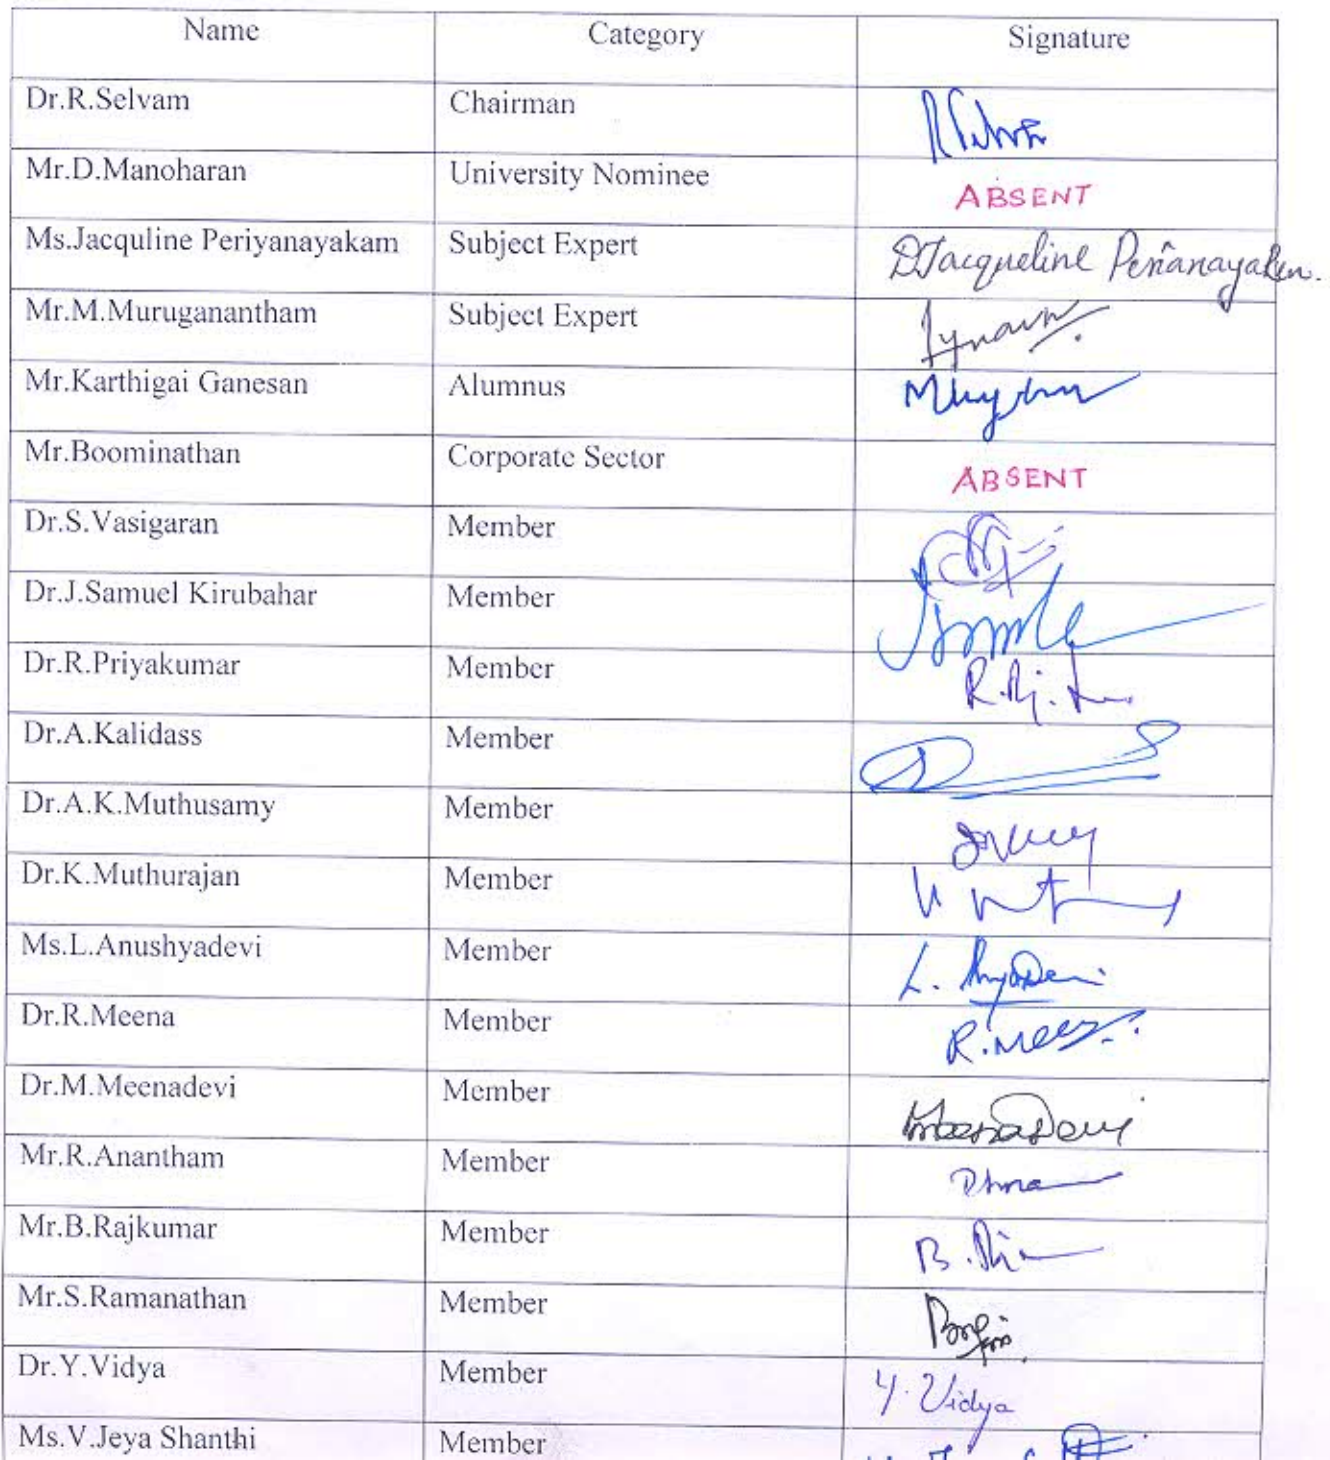 Name Category Signature
Dr.R.Selvam Chairman
Mr.D.Manoharan University Nominee ABSENT
Ms.Jacquline Periyanayakam Subject Expert DJacqueline Perianayaken.
Mr.M.Muruganantham Subject Expert
Mr.Karthigai Ganesan Alumnus
Mr.Boominathan Corporate Sector ABSENT
Dr.S.Vasigaran Member
Dr.J.Samuel Kirubahar Member
Dr.R.Priyakumar Member
Dr.A.Kalidass Member
Dr.A.K.Muthusamy Member
Dr.K.Muthurajan Member
Ms.L.Anushyadevi Member L.
Dr.R.Meena Member R.
Dr.M.Meenadevi Member MeenaDevi
Mr.R.Anantham Member
Mr.B.Rajkumar Member B.
Mr.S.Ramanathan Member
Dr.Y.Vidya Member Y. Vidya
Ms.V.Jeya Shanthi Member